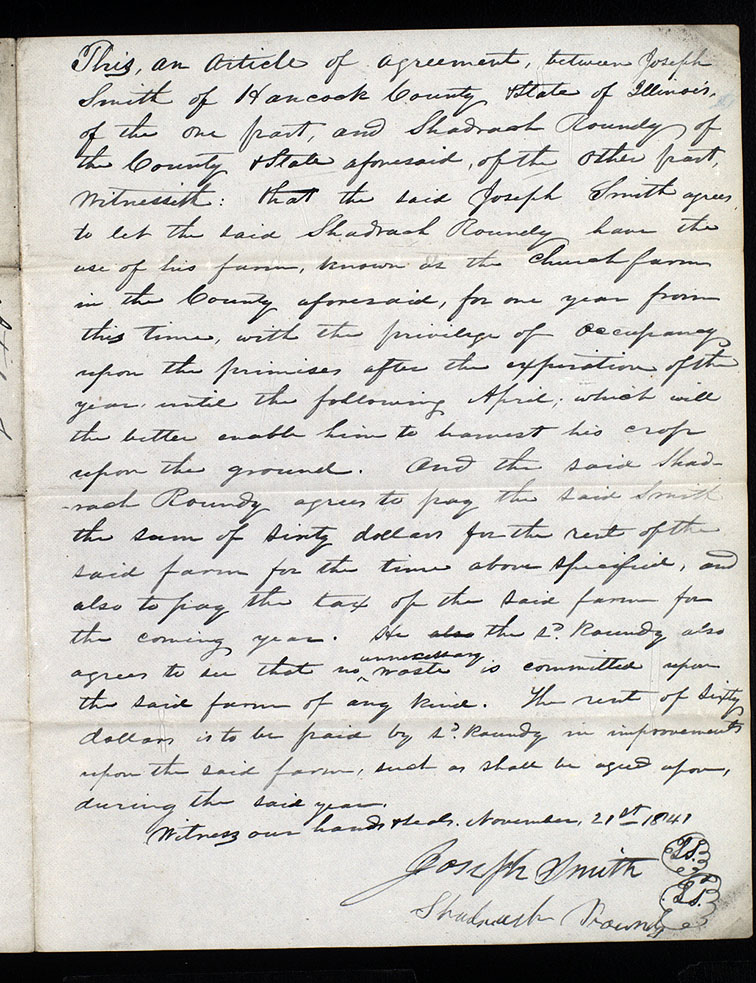 This, an Article of agreement, between Joseph
Smith of Hancock County & State of Illinois,
of the one part, and Shadrach Roundy of
the County & State aforesaid, of the other part,
Witnesseth: that the said Joseph Smith agrees
to let the said Shadrach Roundy have the
use of his farm, known as the Church farm
in the County aforesaid, for one year from
this time, with the privilege of occupancy
upon the primises after the expiration of the
year, until the following April; which will
the better enable him to harvest his crop
upon the ground. And the said Shad-
-rach Roundy agrees to pay the said Smith
the sum of sixty dollars for the rent of the
said farm for the time above specified, and
also to pay the tax of the said farm for
the coming year. He also the sd. Roundy also
agrees to see that no unnecessary waste is committed upon
the said farm of any kind. The rent of sixty
dollars is to be paid by sd. Roundy in improvements
upon the said farm, such as shall be agred upon,
during the said year.
Witness our hands & seals. November, 21st 1841
Joseph Smith L.S.
Shadrach Roundy L.S.